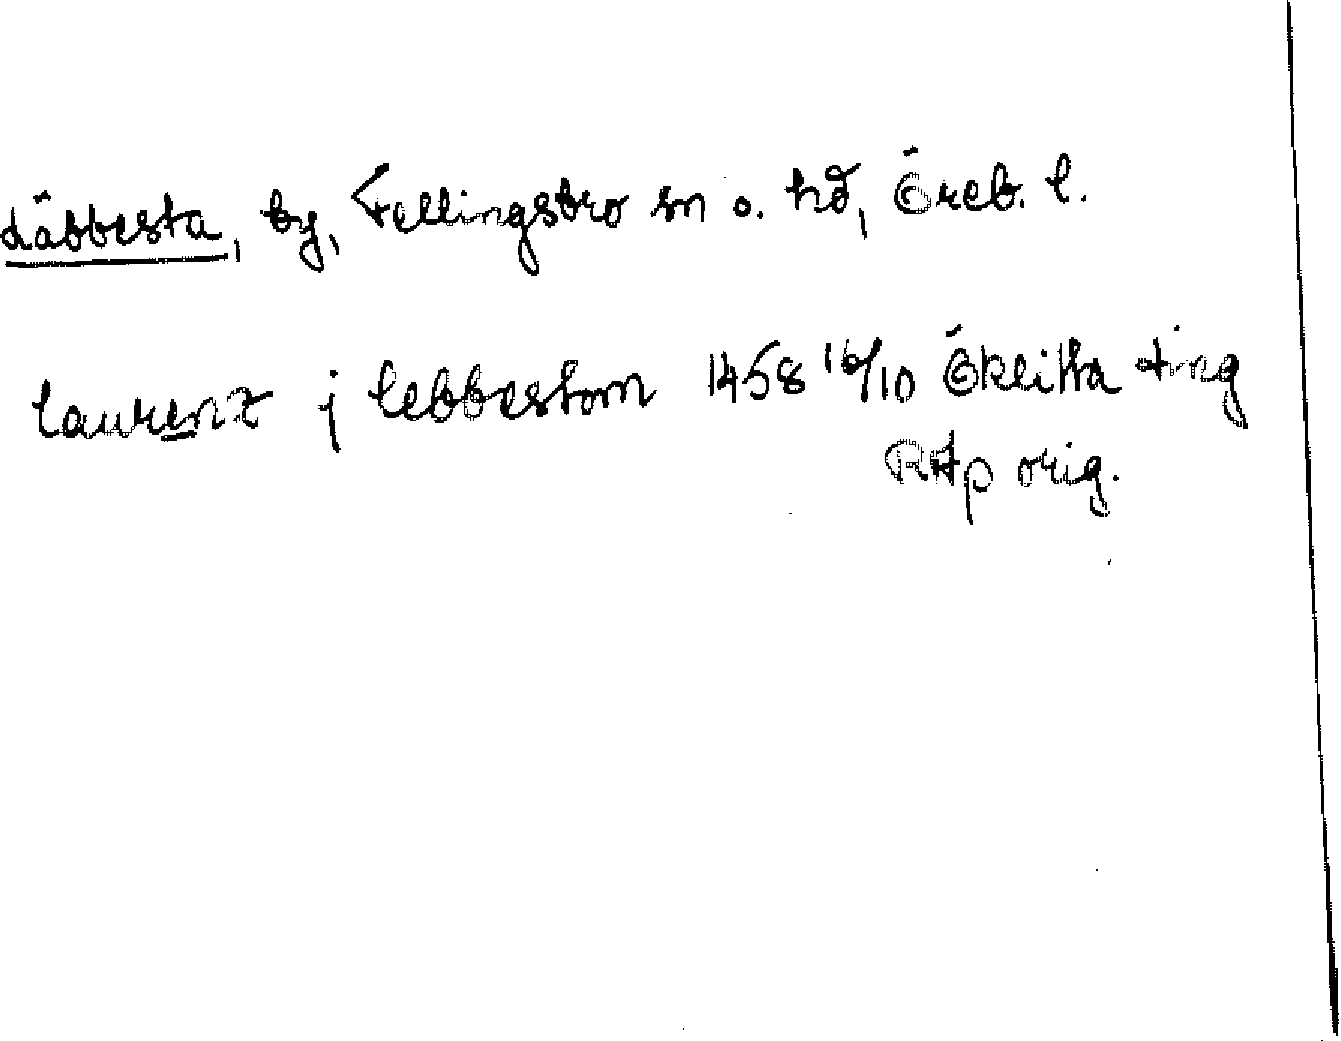 Läbbesta, by, Fellingsbro sn o. hd, Öreb. l.
laurenz j lebbestom 1458 16/10 Öklitta ting
RAp orig.